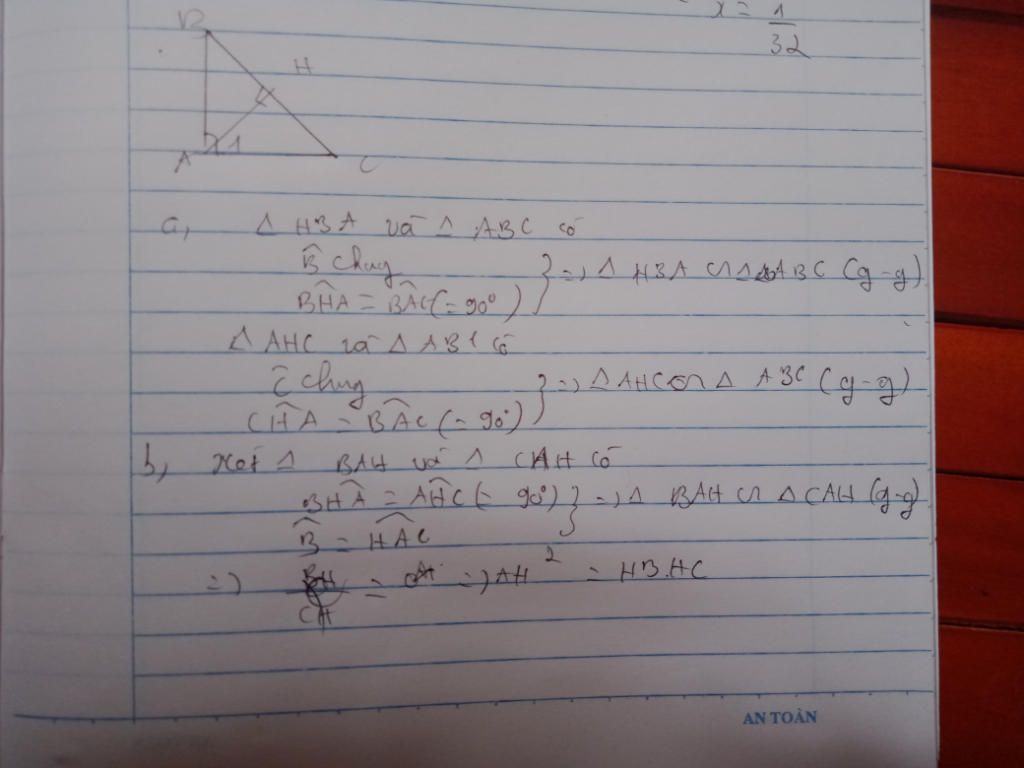 x = 1/32
B
H
A 1 C
a, Δ HBA và Δ ABC có
B̂ chug
BĤA = BÂC (= 90°) } => Δ HBA ∽ Δ ABC (g-g)
Δ AHC và Δ ABC có
Ĉ chug
CĤA = BÂC (= 90°) } => Δ AHC ∽ Δ ABC (g-g)
b, Xét Δ BAH và Δ CAH có
BĤA = AĤC (= 90°) } => Δ BAH ∽ Δ CAH (g-g)
B̂ = HÂC
=> = => AH² = HB.HC
AN TOÀN